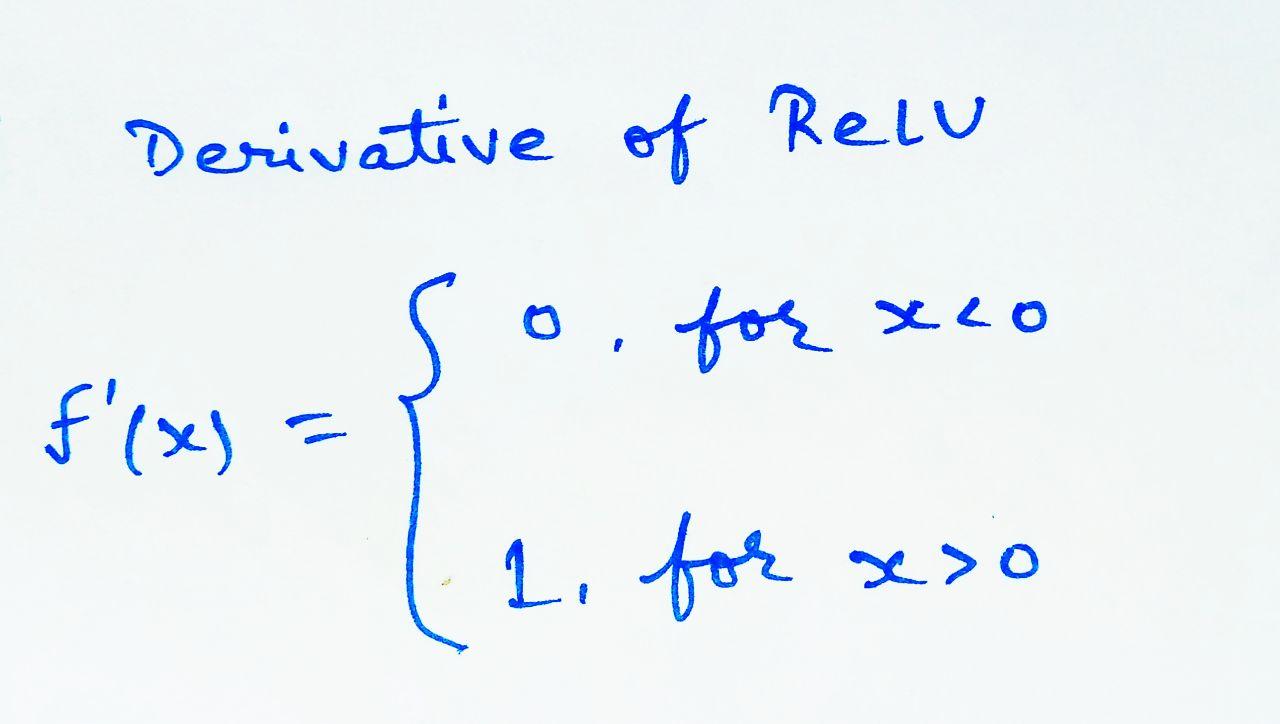 Derivative of ReLU
0, for x<0
f'(x) = {
1, for x>0